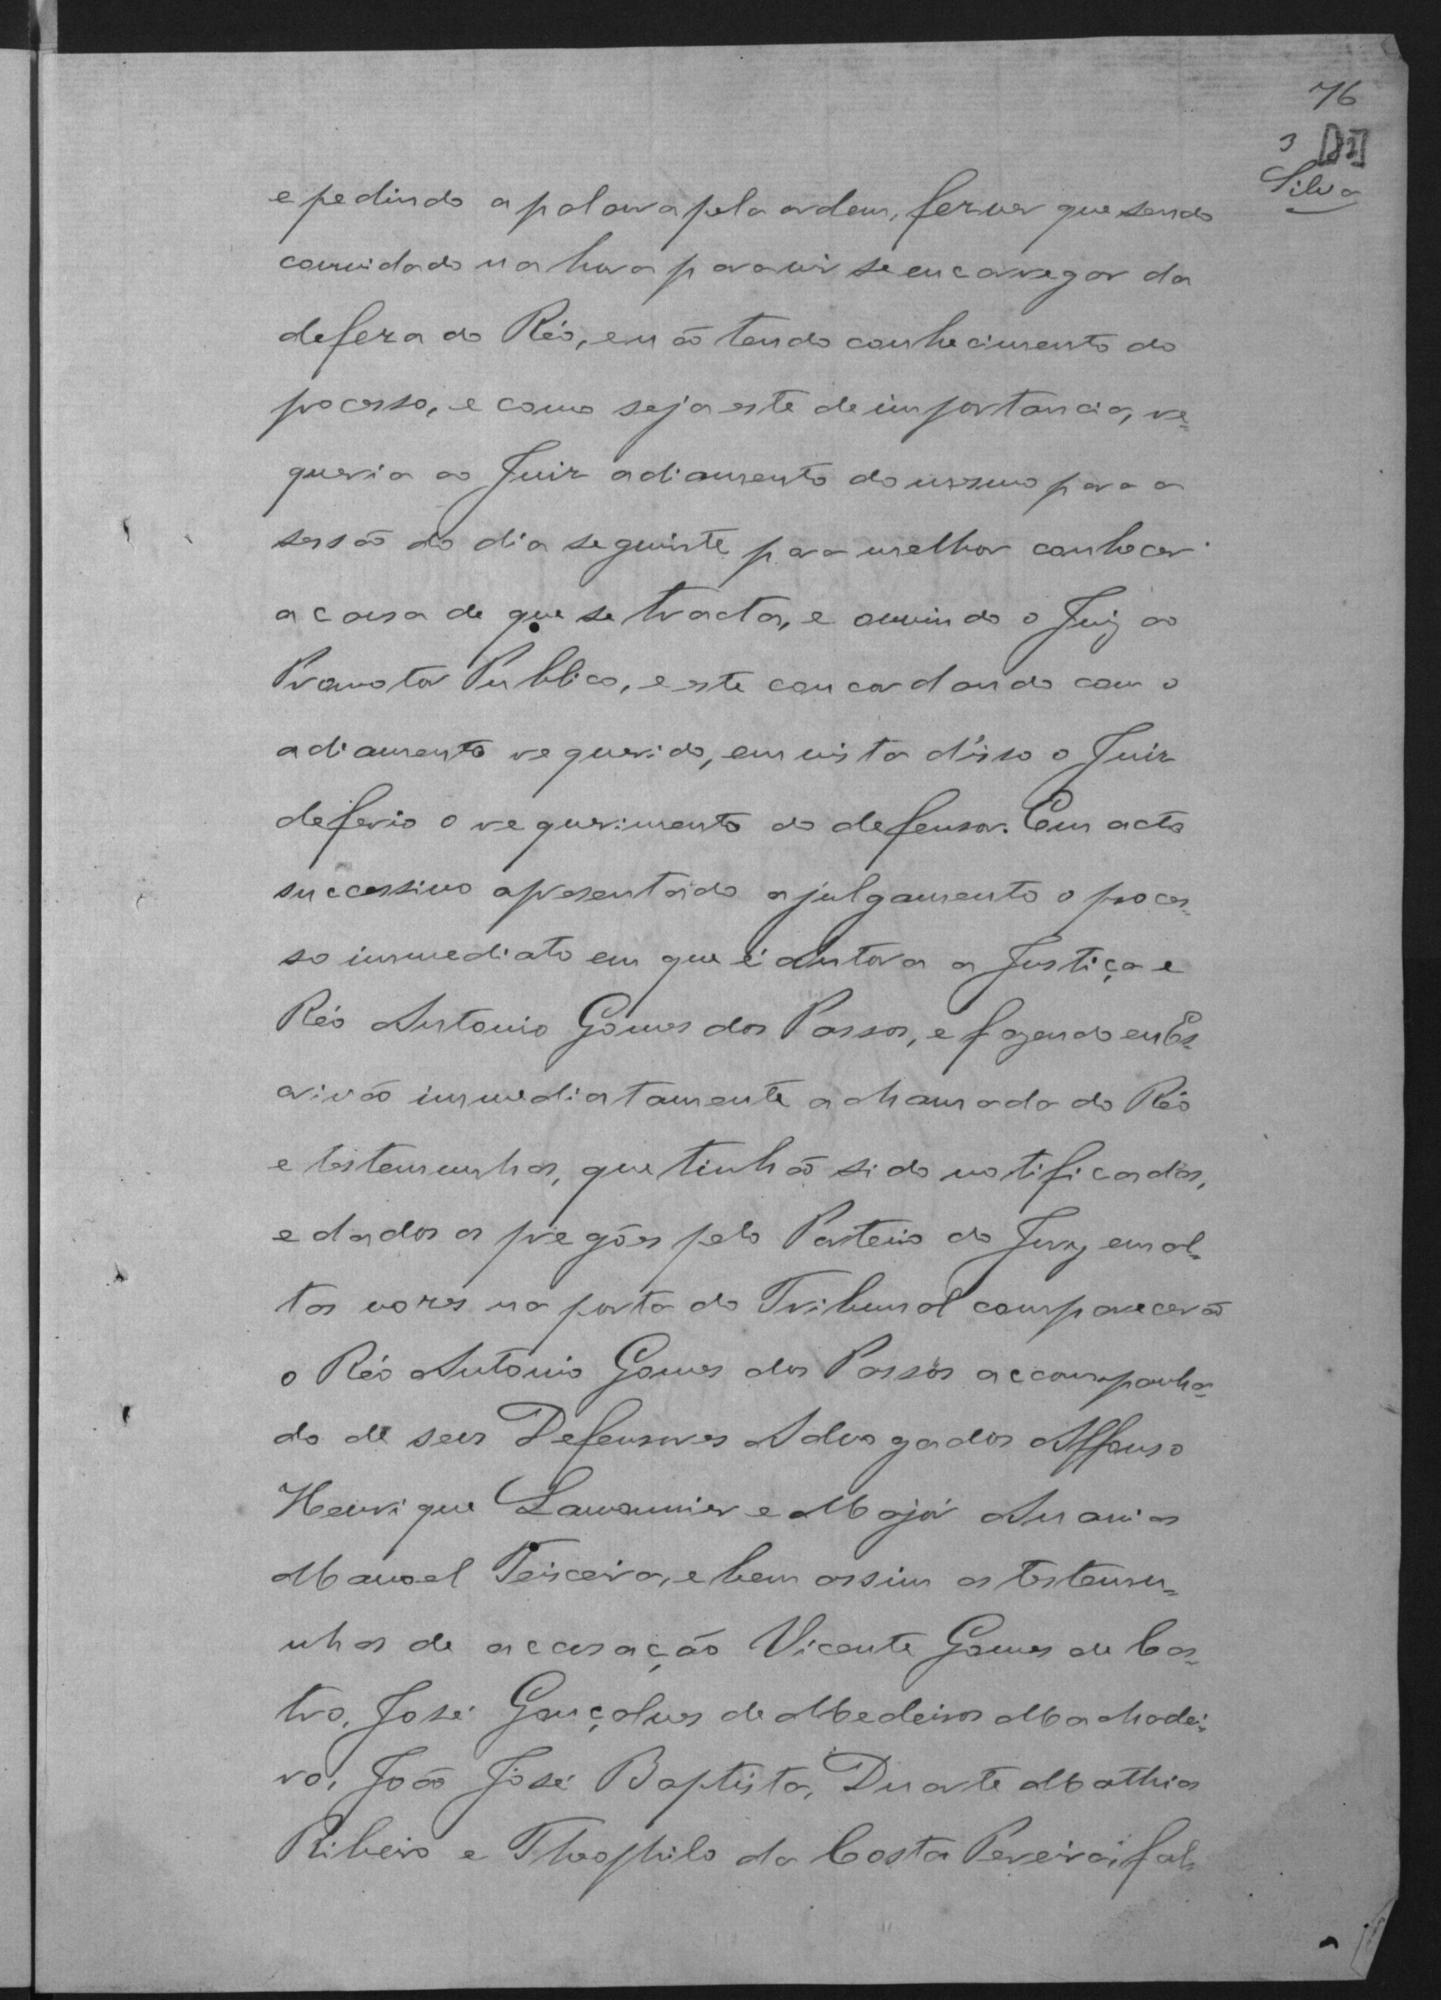 76
3 [21]
Silva
e pedindo a palavra pela ordem, fez ver que sendo
convidado na hora para vir se encarregar da
defeza do Réo, e não tendo conhecimento do
pocesso, e como seja este de importancia, re=
queria ao Juiz adiamento do mesmo para a
sessão do dia seguinte para melhor conhecer
a causa de que se tracta, e ouvindo o Juiz ao
Promotor Publico, e este concordando com o
adiamento requerido, em vista d'isso o Juiz
deferio o requerimento do defensor. Em acto
successivo apresentado a julgamento o proces=
so immediato em que é autora a Justiça e
Réo Antonio Gomes dos Passos, e fazendo eu Es=
crivão immediatamente a chamada do Réo
e testemunhas, que tinhão sido notificados,
e dados os pregões pelo Porteiro do Jury em al=
tas vozes na porta do Tribunal comparecerão
o Réo Antonio Gomes dos Passos accompanha=
do de seus Defensores Advogados Affonso
Henrique Lamounier e Major Ananias
Manoel Teixeira, e bem assim as testemu=
nhas de accusação Vicente Gomes de Cas=
tro, José Gonçalves de Medeiros Machadei=
ro, João José Baptista, Duarte Mathias
Ribeiro e Theophilo da Costa Pereira, fal=